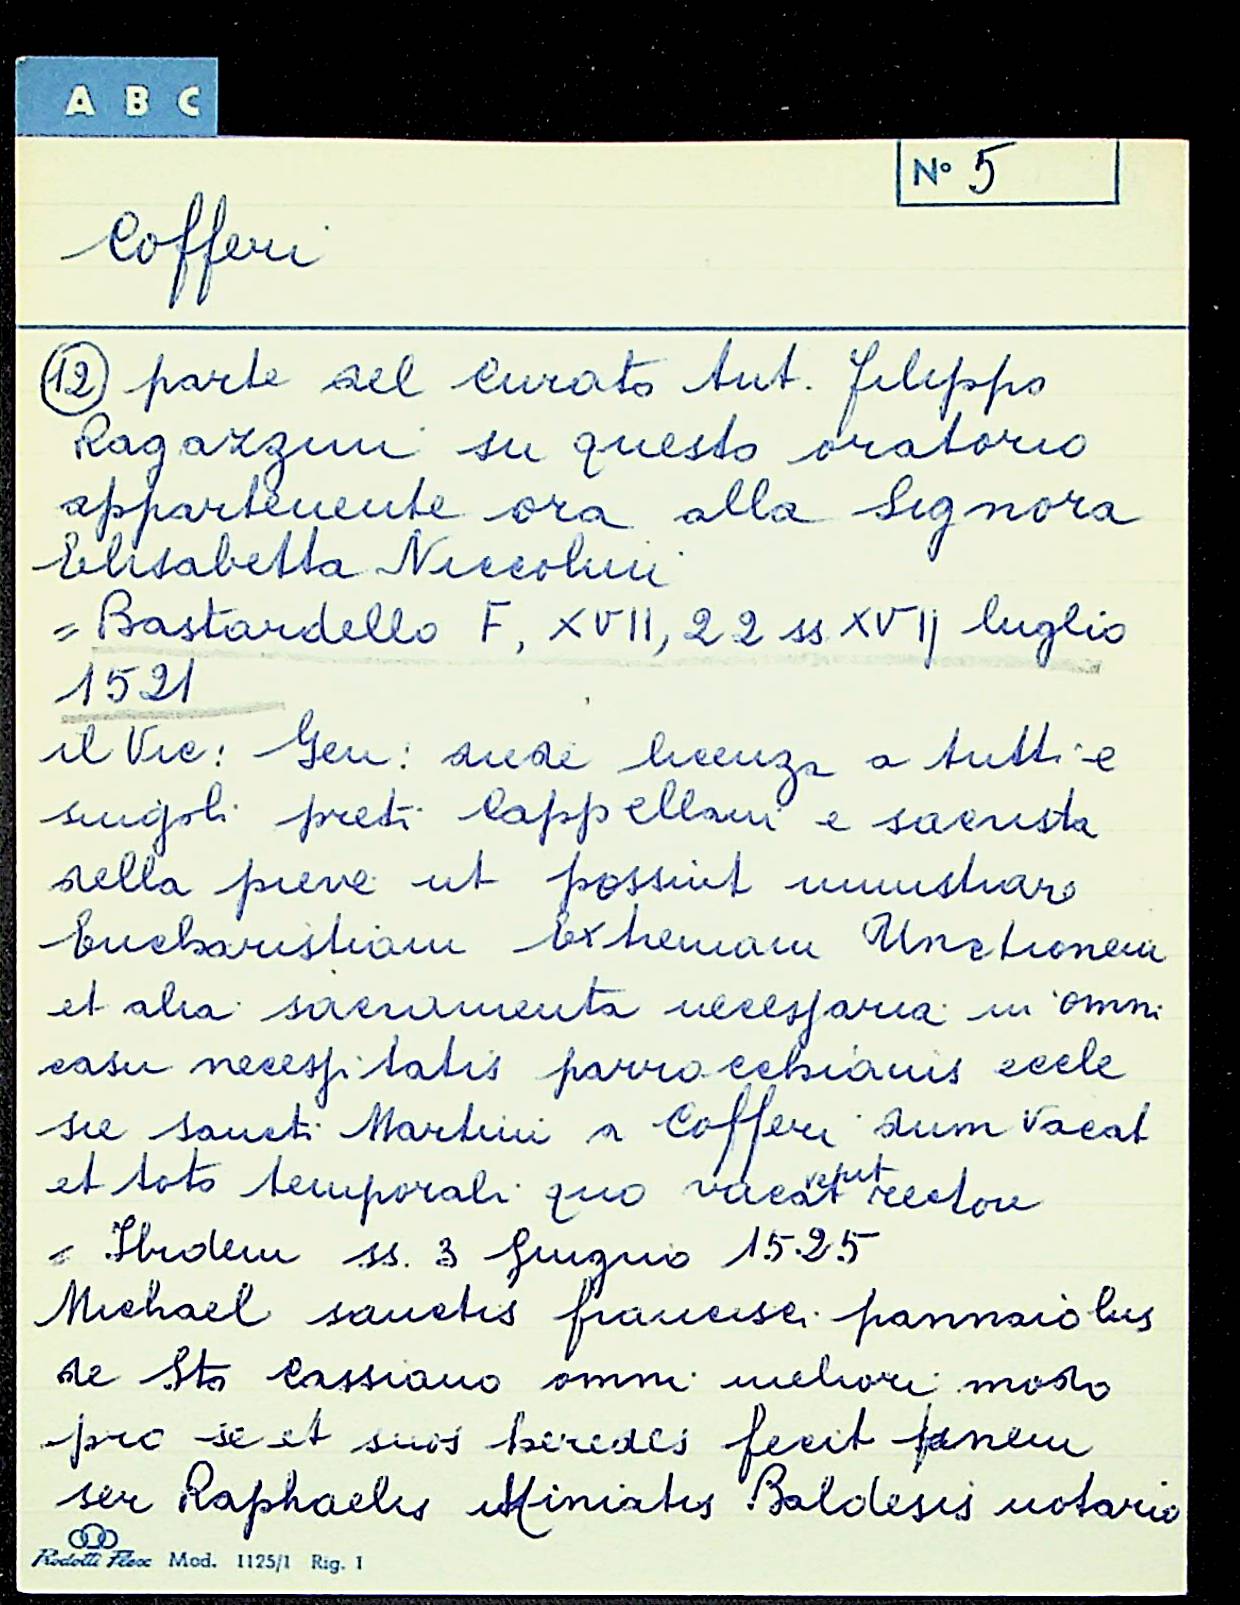 A B C
Nº 5
Cofferi
12 parte del Curato Ant. Filippo
Ragazzini su questo oratorio
appartenente ora alla Signora
Elisabetta Niccolini
= Bastardello F, XVII, 22 ss XVIJ luglio
1521
il Vic: Gen: diede licenza a tutti e
singoli preti Cappellani e sacrista
della pieve ut possint ministrare
Eucharistiam Extremam Unctionem
et alia sacramenta necessaria in omni
casu necessitatis parrocchianis eccle
sie sancti Martini a Cofferi dum vacat
et toto temporali quo vacat rectore
= Ibidem ss. 3 Giugno 1525
Michael sanctis francisci pannaiolus
de Sto Cassiano omni meliori modo
pro se et suos heredes fecit
ser Raphaelis Miniatis Baldesis notario
Rodotti Flex Mod. 1125/1 Rig. 1